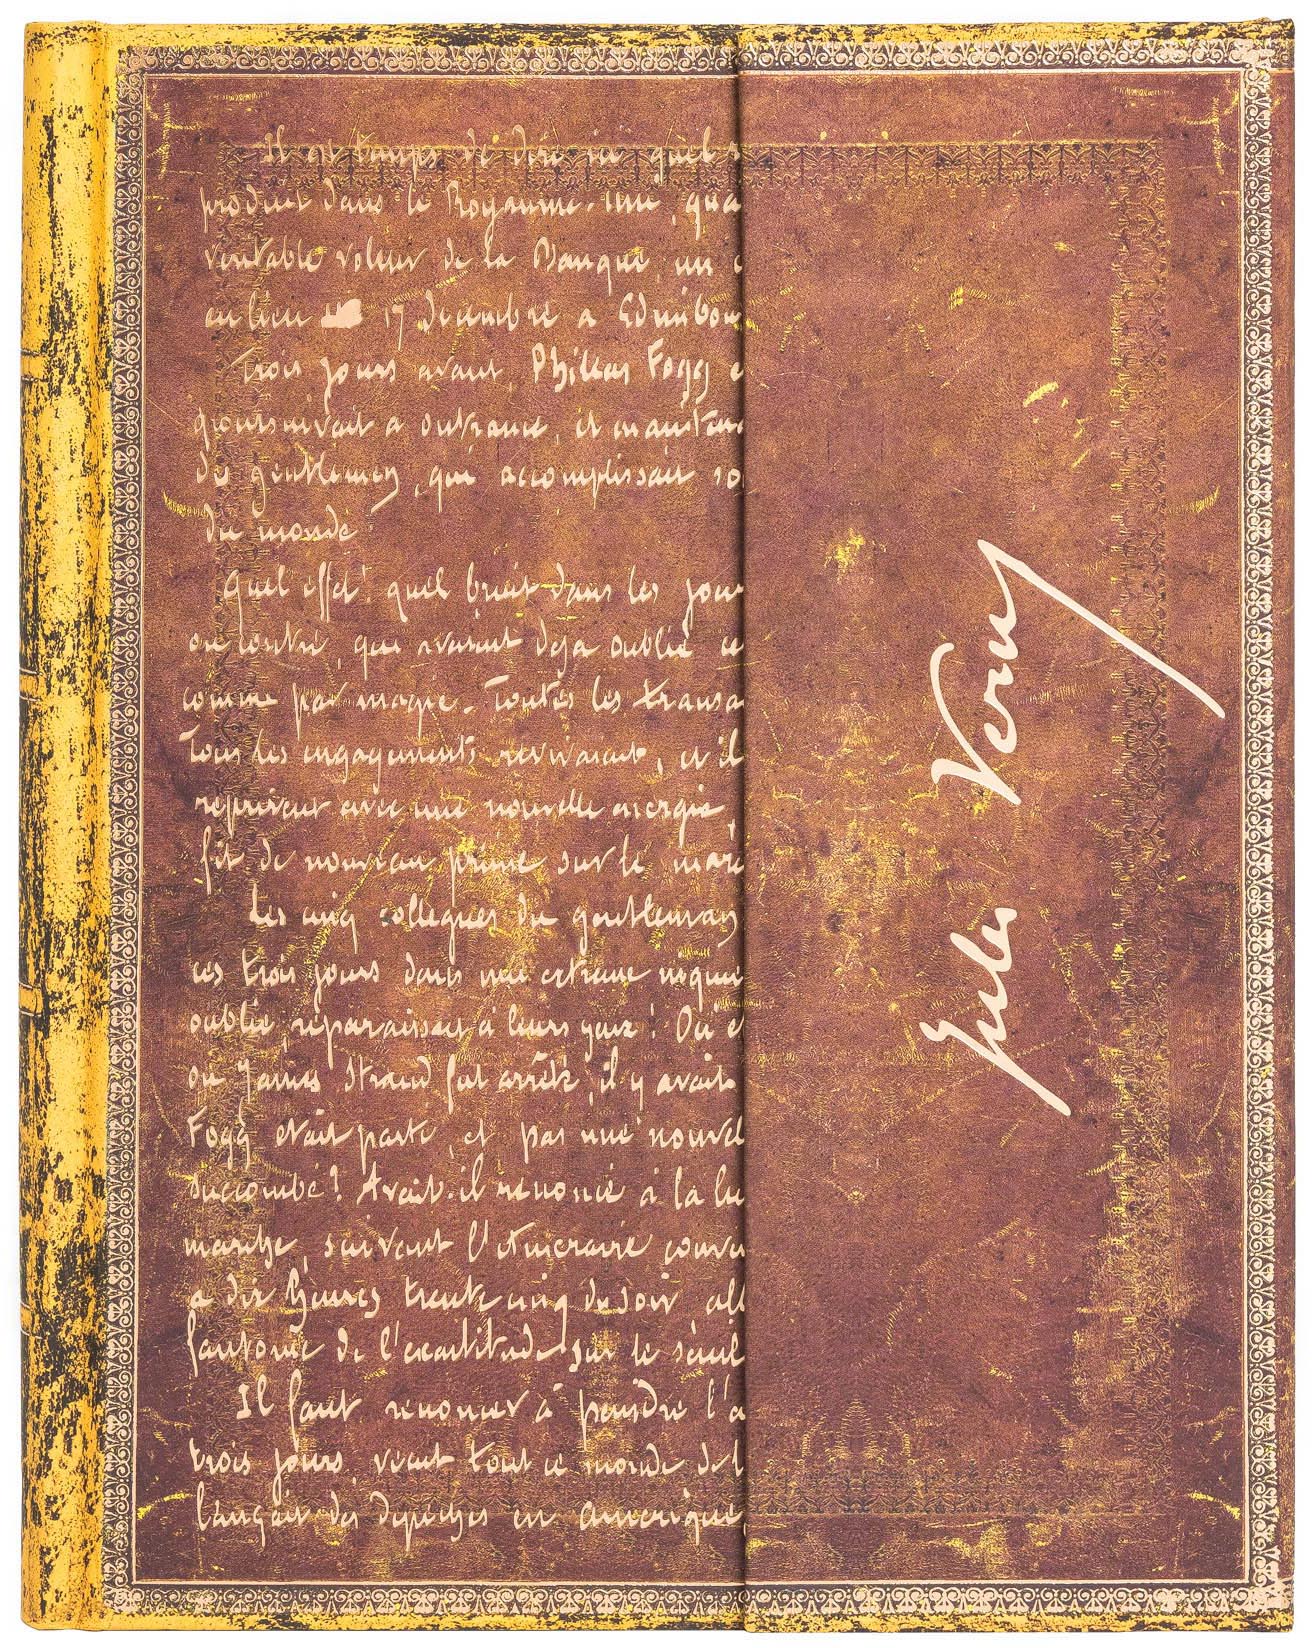 Il est temps de dire ici quel
produit dans le Royaume-Uni, qua
véritable voleur de la Banque, un
eu lieu 17 décembre à Edimbou
Trois jours avant, Phileas Fogg
poursuivait à outrance, et mainten
de gentleman, qui accomplissait so
du monde
Quel effet! quel bruit dans les jour
ou contre, qui avaient déjà oublié ce
comme par magie. Toutes les transa
Tous les engagements revivaient, et il
reprirent avec une nouvelle énergie
fit de nouveau prime sur le marc
Les cinq collègues du gentleman
ces trois jours dans une extrême inquié
oublié, reparaissait à leurs yeux! Où e
où James Strand fut arrêté, il y avait
Fogg était parti, et pas une nouvel
succombé? Avait-il renoncé à la lu
marche, suivant l'itinéraire conve
à dix heures trente cinq du soir all
fantôme de l'exactitude sur le seuil
Il faut renoncer à peindre l'a
trois jours, vécut tout ce monde de l
lançait des dépêches en Amérique,
Jules Verne